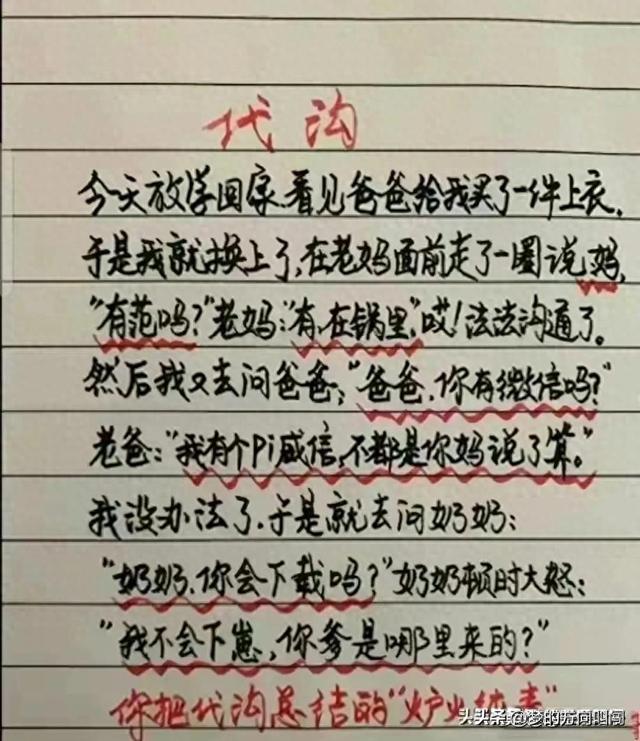 代沟
今天放学回家,看见爸爸给我买了一件上衣,
于是我就换上了,在老妈面前走了一圈说妈,
"有范吗?"老妈:"有,在锅里",哎!法法沟通了。
然后我又去问爸爸:"爸爸,你有微信吗?"
老爸:"我有个Pi威信,不都是你妈说了算。"
我没办法了,于是就去问奶奶:
"奶奶,你会下载吗?"奶奶顿时大怒:
"我不会下崽,你爹是哪里来的?"
你把代沟总结的"炉业纯青"
头条 @梦的方向叫闯